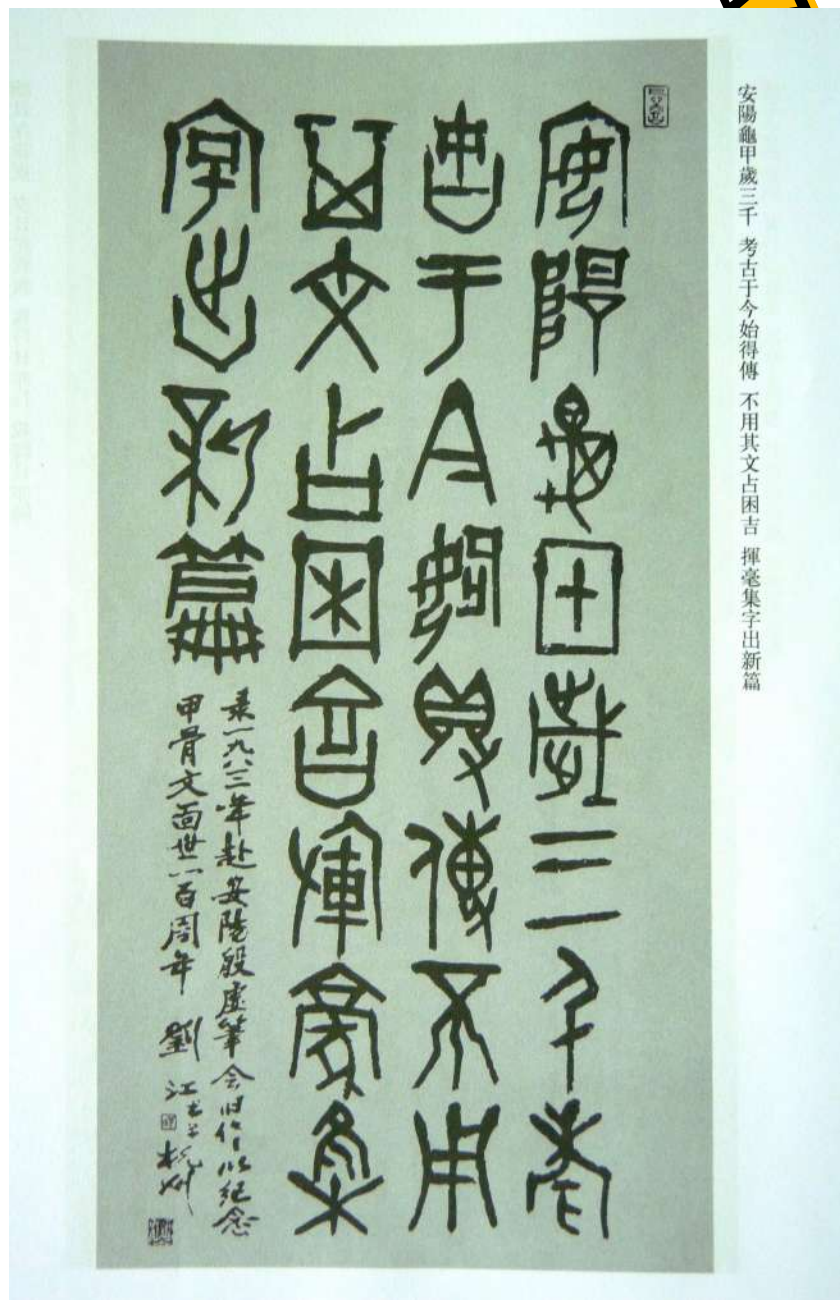 安陽龜甲歲三千 考古于今始得傳 不用其文占困吉 揮毫集字出新篇
安陽龜甲歲三千考
古于今始得傳不用
其文占困吉揮毫集
字出新篇
录一九八三年赴安陽殷虚筆会旧作以纪念
甲骨文面世一百周年 劉江书于杭州